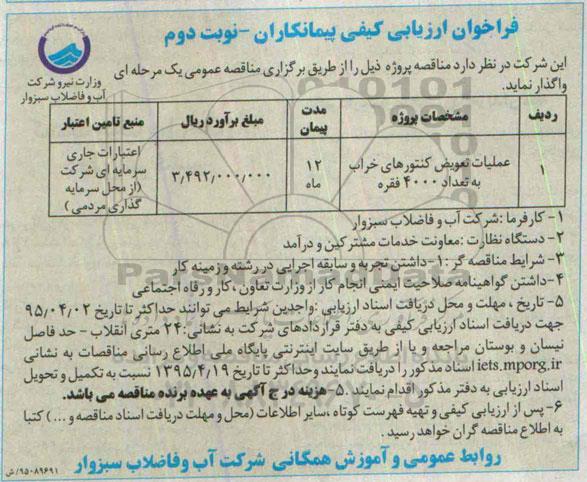 فراخوان ارزیابی کیفی پیمانکاران -نوبت دوم
وزارت نیرو شرکت
آب و فاضلاب سبزوار
این شرکت در نظر دارد مناقصه پروژه ذیل را از طریق برگزاری مناقصه عمومی یک مرحله ای
واگذار نماید.
ردیف مشخصات پروژه مدت پیمان مبلغ برآورد ریال منبع تامین اعتبار
۱ عملیات تعویض کنتورهای خراب به تعداد ۴۰۰۰ فقره ۱۲ ماه ۳/۴۹۲/۰۰۰/۰۰۰ اعتبارات جاری سرمایه ای شرکت (از محل سرمایه گذاری مردمی)
۱- کارفرما :شرکت آب و فاضلاب سبزوار
۲- دستگاه نظارت :معاونت خدمات مشترکین و درآمد
۳- شرایط مناقصه گر :۱-داشتن تجربه و سابقه اجرایی در رشته و زمینه کار
۴-داشتن گواهینامه صلاحیت ایمنی انجام کار از وزارت تعاون ،کار و رفاه اجتماعی
۵- تاریخ ، مهلت و محل دریافت اسناد ارزیابی :واجدین شرایط می توانند حداکثر تا تاریخ ۹۵/۰۴/۰۲
جهت دریافت اسناد ارزیابی کیفی به دفتر قراردادهای شرکت به نشانی:۲۴ متری انقلاب - حد فاصل
نیسان و بوستان مراجعه و یا از طریق سایت اینترنتی پایگاه ملی اطلاع رسانی مناقصات به نشانی
iets.mporg,ir اسناد مذکور را دریافت نمایند وحداکثر تا تاریخ ۱۳۹۵/۴/۱۹ نسبت به تکمیل و تحویل
اسناد ارزیابی به دفتر مذکور اقدام نمایند .۵- هزینه درج آگهی به عهده برنده مناقصه می باشد.
۶- پس از ارزیابی کیفی و تهیه فهرست کوتاه ،سایر اطلاعات (محل و مهلت دریافت اسناد مناقصه و ...) کتبا
به اطلاع مناقصه گران خواهد رسید .
روابط عمومی و آموزش همگانی شرکت آب وفاضلاب سبزوار
۹۵۰۸۹۶۹۱/ش